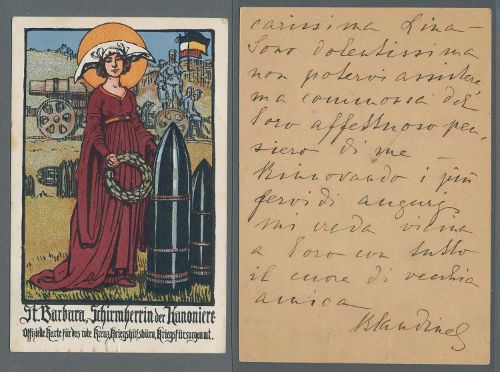 St. Barbara, Schirmherrin der Kanoniere
Offizielle Karte für das rote Kreuz, Kriegshilfsbüro, Kriegsfürsorgeamt.
carissima Lina –
Sono dolentissima
non potervi assistere
ma commossa del
loro affettuoso pen-
siero di me –
Rinnovando i più
fervidi augurj
mi creda vicina
a loro con tutto
il cuore di vecchia
amica